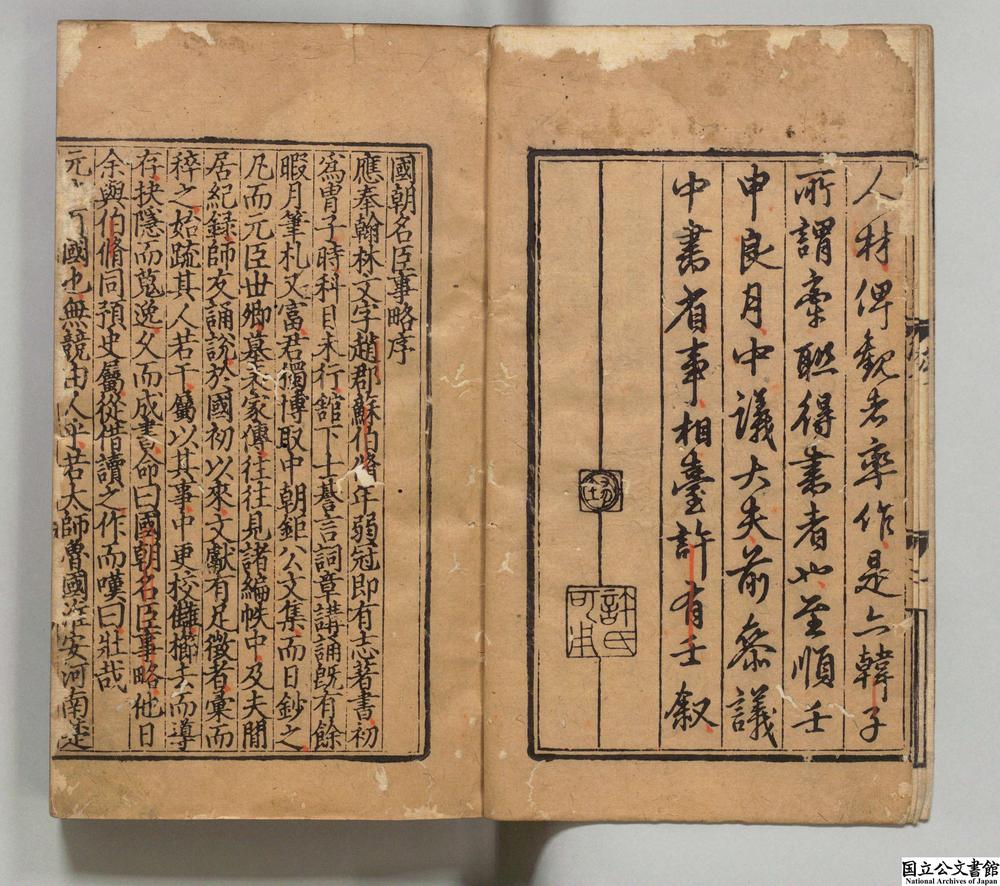 人材俾觀者率作是亦韓子
所謂牽聯得書者也至順壬
申良月中議大夫前參議
中書省事相臺許有壬叙
許氏可用
國朝名臣事略序
應奉翰林文字趙郡蘇伯脩年弱冠即有志著書初
爲胄子時科目未行舘下士朞言詞章講誦既有餘
暇月筆札又富君獨博取中朝鉅公文集而日鈔之
凡而元臣世卿墓表家傳往往見諸編帙中及夫閒
居紀録師友誦說於國初以來文獻有足徵者彙而
稡之始䟽其人若干屬以其事中更校讎櫛去而導
存抉隱而蒐逸久而成書命曰國朝名臣事略他日
余與伯脩同預史屬從借讀之作而嘆曰壯哉
元國也無競由人乎若太師魯國淮安河南楚
国立公文書館
National Archives of Japan